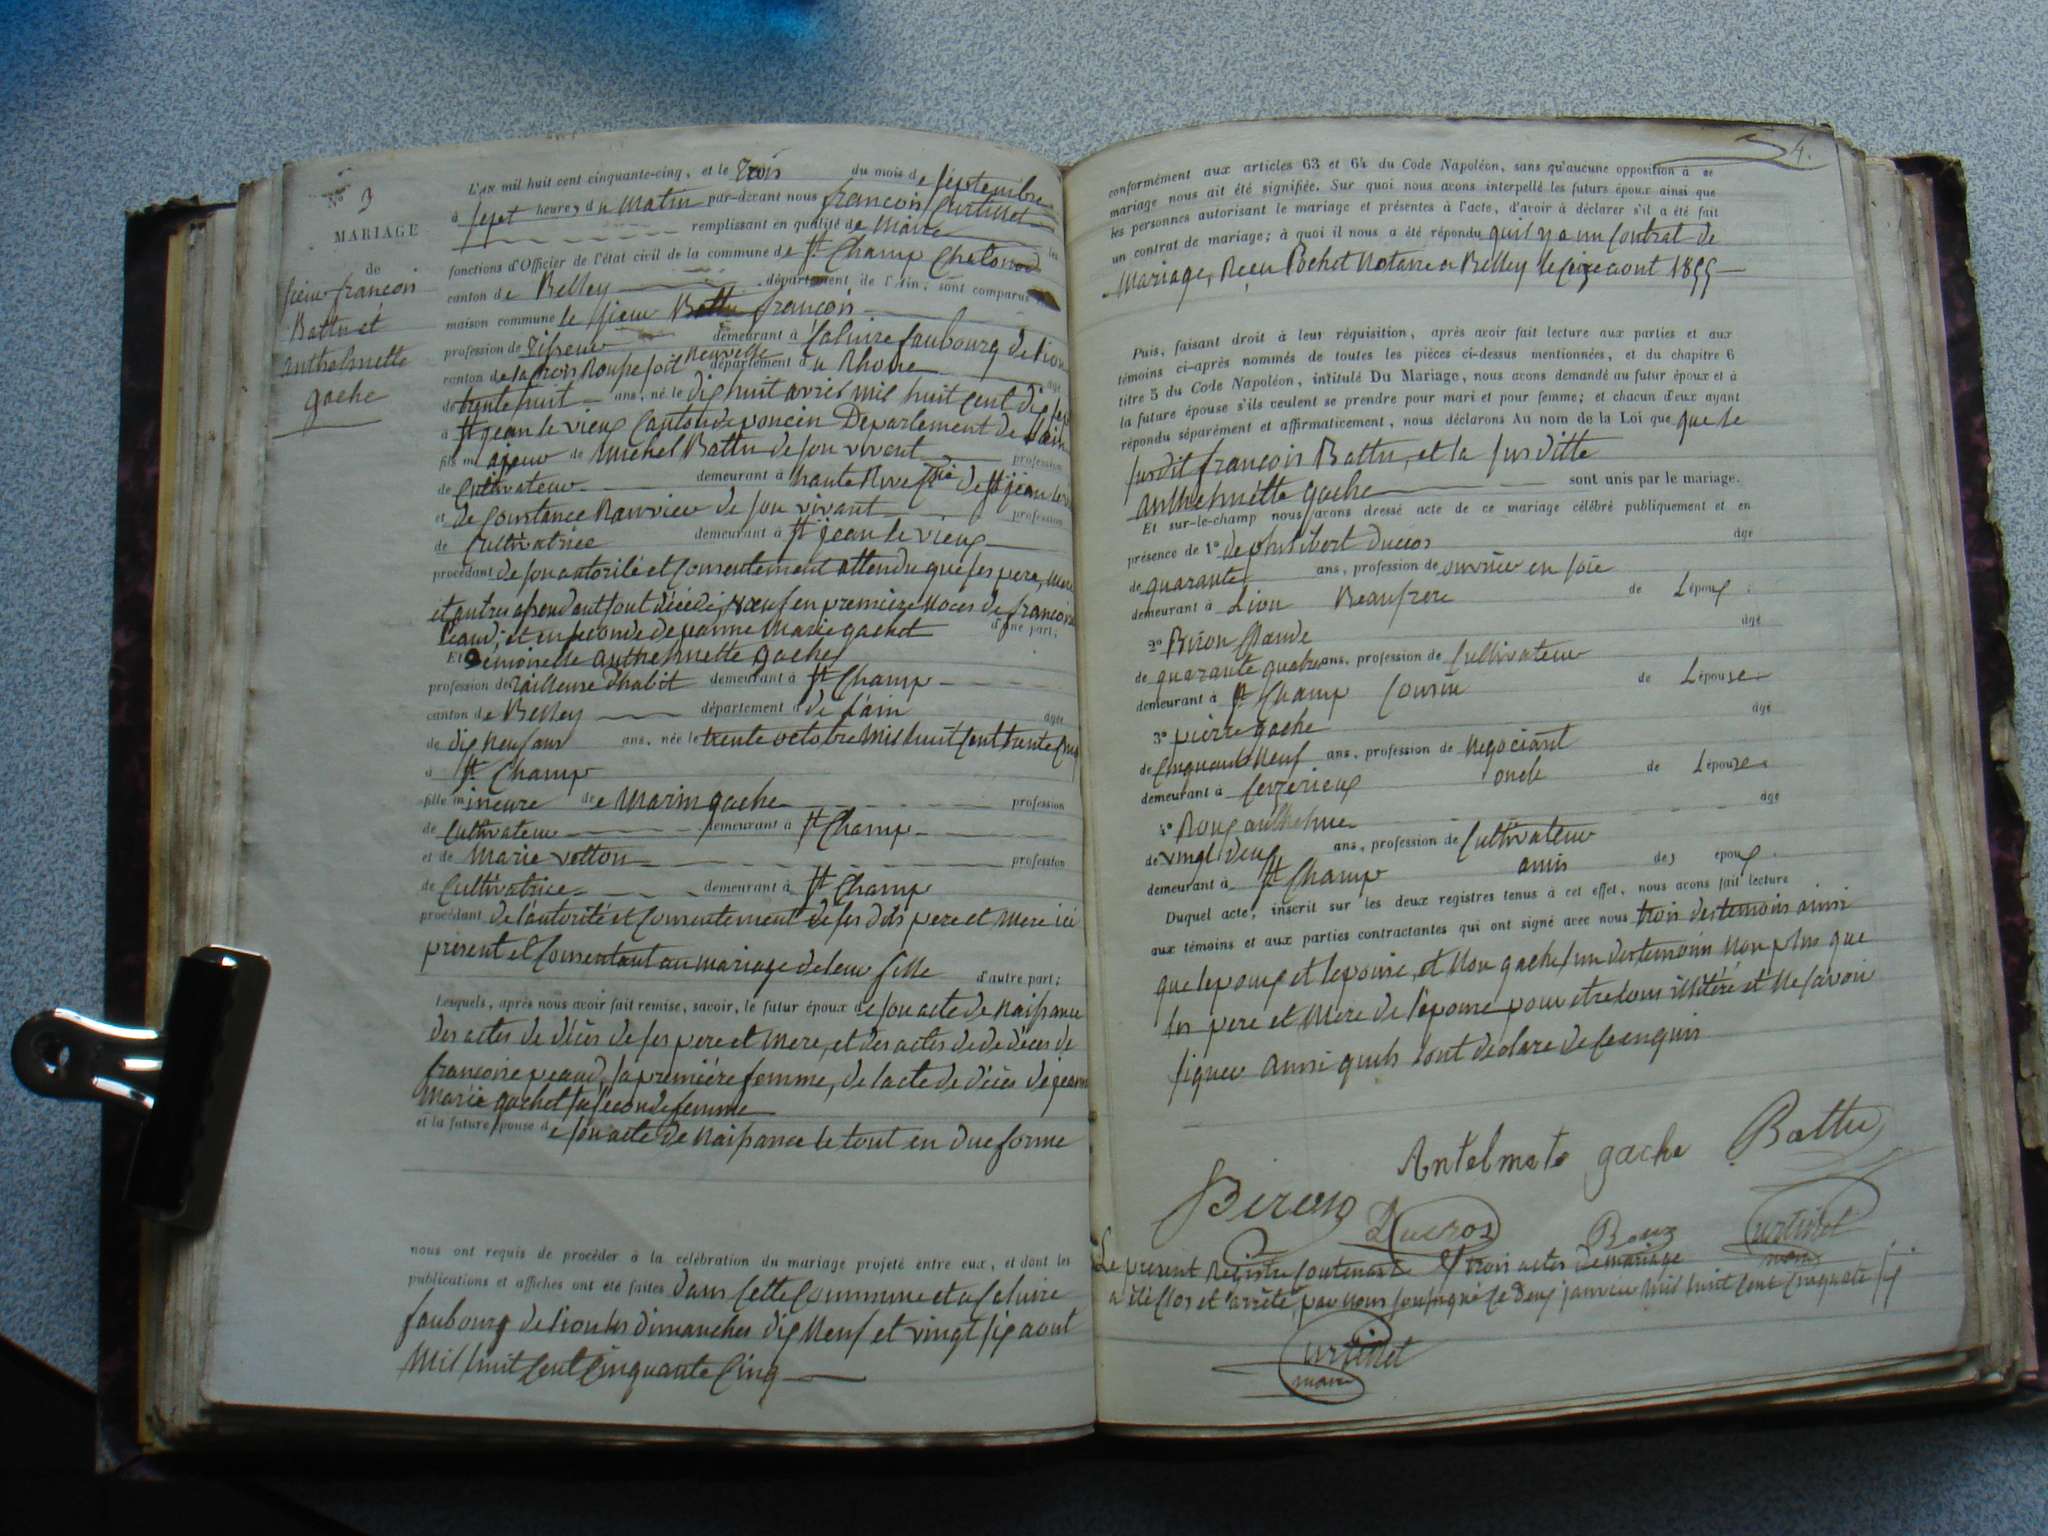 N° 3
MARIAGE
de
sieur françois
Battu et
anthelmette
gache
L'AN mil huit cent cinquante-cinq, et le trois du mois de septembre
à sept heures du matin par-devant nous françois Curtillet
remplissant en qualité de Maire les
fonctions d'Officier de l'état civil de la commune de St Champ Chatonod
canton de Belley département de l'Ain; sont comparus
maison commune le sieur Battu françois
profession de tisseur demeurant à Caluire faubourg de lion
canton de la croix Rousse soit Neuville département du Rhone âgé
de trente huit ans, né le dix huit avril mil huit cent dix sept
à St jean le vieux Canton de poncin Département de lain
fils majeur de Michel Battu de son vivant profession
de Cultivateur demeurant à haute Rive de St jean le
et de Constance Ravrieu de son vivant profession
de Cultivatrice demeurant à St jean le vieux
procédant de son autorité et Consentement attendu que ses pere, mere
et autres asendant sont décédé, veuf en première noces de francoise
peaud, et en seconde de janne Marie gachet d'une part;
Et Démoiselle anthelmette gache
profession de tailleuse d'habit demeurant à St Champ
canton de Belley département de lain âgée
de dix neuf ans ans, née le trente octobre mil huit Cent trente Cinq
à St Champ
fille mineure de Marin gache profession
de Cultivateur demeurant à St Champ
et de Marie votton profession
de Cultivatrice demeurant à St Champ
procédant de l'autorité et Consentement de ses dits pere et mere ici
présent et Consentant au mariage de leur fille d'autre part;
Lesquels, après nous avoir fait remise, savoir, le futur époux de son acte de Naissance
des actes de décès de ses pere et mere, et des actes de de décès de
francoise peaud, sa première femme, de lacte de décès de jeann
Marie gachet sa seconde femme
et la future épouse de son acte de Naissance le tout en due forme
nous ont requis de procéder à la célébration du mariage projeté entre eux, et dont les
publications et affiches ont été faites dans cette Commune et a Caluire
faubourg de lion les dimanches dix Neuf et vingt six aout
Mil huit Cent Cinquante Cinq
4.
conformément aux articles 63 et 64 du Code Napoléon, sans qu'aucune opposition à ce
mariage nous ait été signifiée. Sur quoi nous avons interpellé les futurs époux ainsi que
les personnes autorisant le mariage et présentes à l'acte, d'avoir à déclarer s'il a été fait
un contrat de mariage; à quoi il nous a été répondu quil y a un Contrat de
Mariage, Reçu Pochet Notaire a Belley le seize aout 1855
Puis, faisant droit à leur réquisition, après avoir fait lecture aux parties et aux
témoins ci-après nommés de toutes les pièces ci-dessus mentionnées, et du chapitre 6
titre 5 du Code Napoléon, intitulé Du Mariage, nous avons demandé au futur époux et à
la future épouse s'ils veulent se prendre pour mari et pour femme; et chacun d'eux ayant
répondu séparément et affirmativement, nous déclarons Au nom de la Loi que que le
susdit françois Battu, et la susditte
anthelmette gache sont unis par le mariage.
Et sur-le-champ nous avons dressé acte de ce mariage célébré publiquement et en
présence de 1° de philibert ducros âgé
de quarante ans, profession de ouvrier en soie
demeurant à Lion Beaufrere de Lépoux
2° Biron Claude âgé
de quarante quatre ans, profession de Cultivateur
demeurant à St Champ Cousin de Lépouse
3° pierre gache âgé
de Cinquante Neuf ans, profession de Negociant
demeurant à Ceyzerieux oncle de Lépouse
4° Roux anthelme âgé
de vingt deux ans, profession de Cultivateur
demeurant à St Champ amis des epoux
Duquel acte, inscrit sur les deux registres tenus à cet effet, nous avons fait lecture
aux témoins et aux parties contractantes qui ont signé avec nous trois des temoins ainsi
que lepoux et lepouse, et Non gache lun des temoins non plus que
les pere et mere de l'epouse pour etre tous illitéré et Ne savoir
signer ainsi quils lont déclare de ce enquis
Antelmete gache Battu
Biron Ducros Roux Curtillet
maire
Le present Registre Contenant trois actes de mariage
a été Clos et arrêté par nous soussigné le deux janvier mil huit Cent Cinquante six
Curtillet
maire